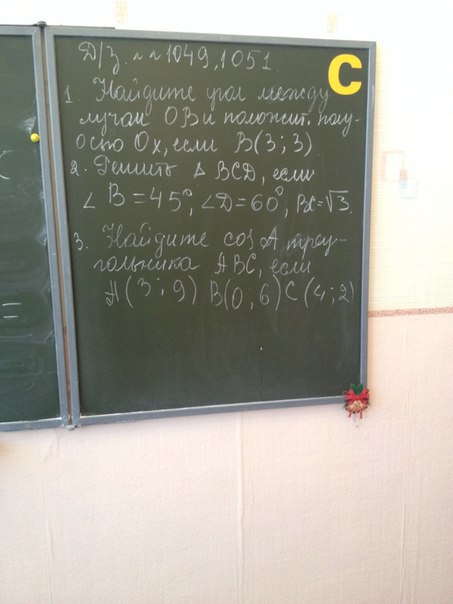 Д/З. №№1049, 1051.
C
1 Найдите угол между
лучом ОВ и положит. полу-
осью Ох, если В(3; 3)
2. Решить △ BCD, если
∠B=45°, ∠D=60°, BC=√3.
3. Найдите cos A треу-
гольника ABC, если
A(3; 9) B(0; 6) C(4; 2)
=